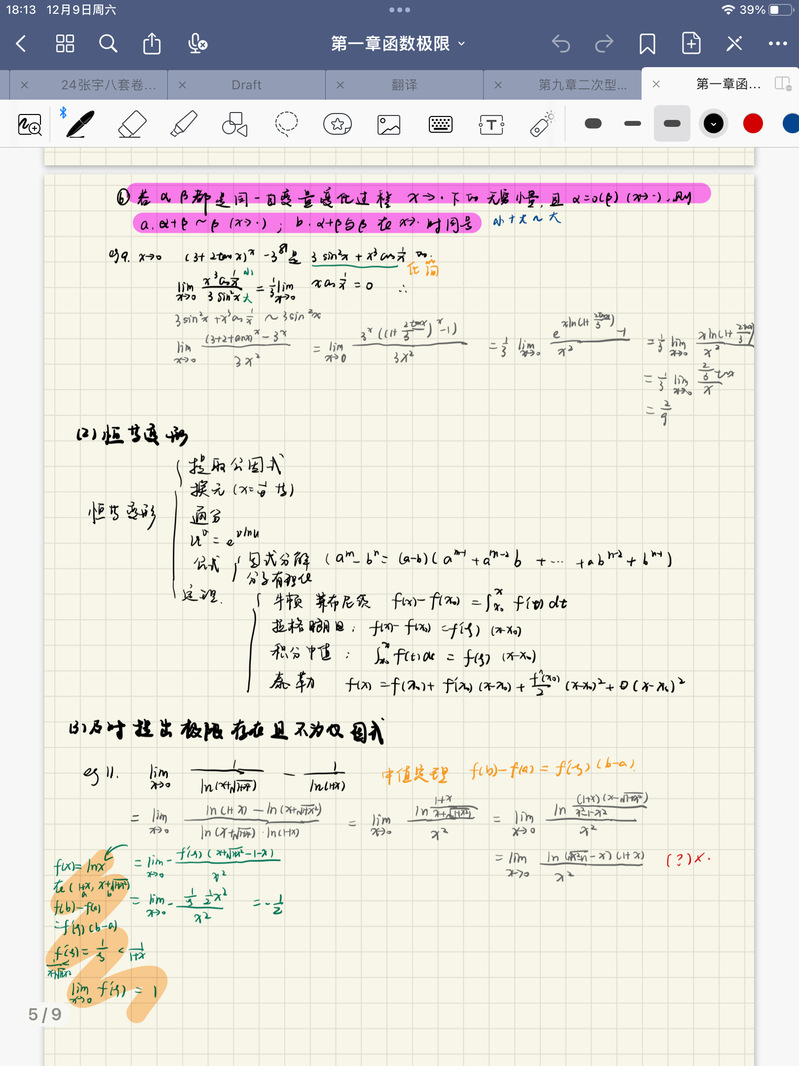 18:13 12月9日周六 39%
第一章函数极限
24张宇八套卷... Draft 翻译 第九章二次型... 第一章函...
⑥ 若 α β 都是同一自变量变化过程 x→· 下的无穷小量, 且 α=o(β) (x→·), 则
a. α+β ~ β (x→·) ; b. α+β与β 在 x→· 时同号 小+大~大
eg9. x→0 (3+2tanx)^x - 3^x 是 3sin²x + x³cos 1/x
化简
lim x→0 x³cos 1/x / 3sin²x = 1/3 lim x→0 x cos 1/x = 0 ∴
小
大
3sin²x + x³cos 1/x ~ 3sin²x
lim x→0 (3+2tanx)^x - 3^x / 3x² = lim x→0 3^x((1+ 2tanx/3)^x -1) / 3x² = 1/3 lim x→0 e^{xln(1+ 2tanx/3)} -1 / x² = 1/3 lim x→0 xln(1+ 2tanx/3) / x²
= 1/3 lim x→0 2/3 tanx / x
= 2/9
(2) 恒等变形
恒等变形
提取公因式
换元 (x=1/t 等)
通分
u^v = e^{vlnu}
公式 因式分解 (a^n - b^n = (a-b)(a^{n-1} + a^{n-2}b + ... + ab^{n-2} + b^{n-1})
分子有理化
定理. 牛顿 莱布尼茨 f(x)-f(x₀) = ∫_{x₀}^{x} f'(t)dt
拉格朗日: f(x)-f(x₀) = f'(ξ) (x-x₀)
积分中值: ∫_{x₀}^{x} f(t)dt = f(ξ) (x-x₀)
泰勒 f(x) = f(x₀) + f'(x₀)(x-x₀) + f''(x₀)/2 (x-x₀)² + o(x-x₀)²
(3) 及时提出极限存在且不为0因式
eg 11. lim x→0 1/ln(x+√(1+x²)) - 1/ln(1+x) 中值定理 f(b)-f(a) = f'(ξ) (b-a).
= lim x→0 ln(1+x) - ln(x+√(1+x²)) / ln(x+√(1+x²))·ln(1+x) = lim x→0 ln (1+x)/(x+√(1+x²)) / x² = lim x→0 ln (1+x)(x-√(1+x²))/(x²-1-x²) / x²
= lim x→0 ln(√(x²+1)-x)(1+x) / x² (?)×.
f(x)=lnx
在(1+x, x+√(1+x²))
a b
f(b)-f(a)
=f'(ξ)(b-a)
f'(ξ)= 1/ξ < 1/(1+x)
1/(x+√(1+x²))<
lim x→0 f'(ξ) = 1
= lim x→0 - f'(ξ)(x+√(1+x²)-1-x) / x²
= lim x→0 - 1/ξ · 1/2 x² / x² = -1/2
5 / 9